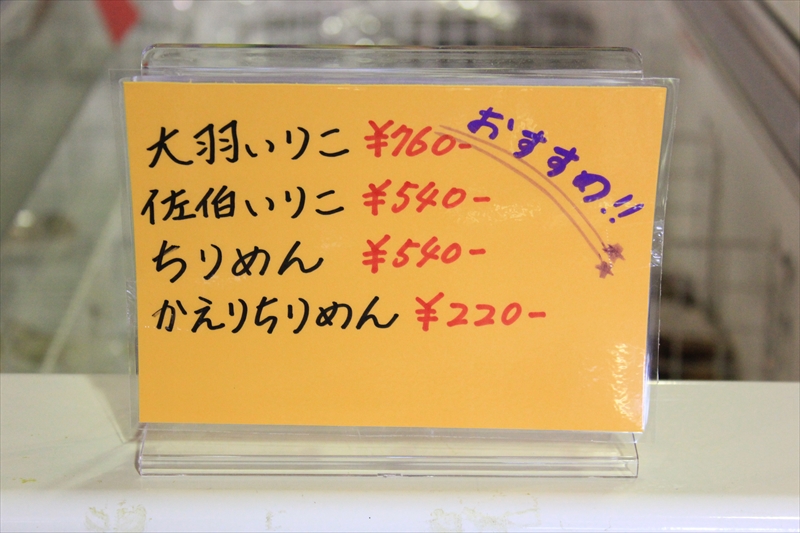 大羽いりこ ¥760-
佐伯いりこ ¥540-
ちりめん ¥540-
かえりちりめん ¥220-
おすすめ!!